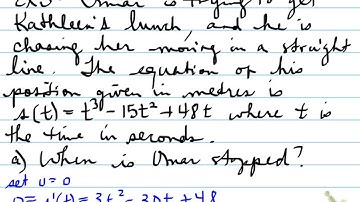 Ex 3 Omar is trying to get
Kathleen's lunch, and he is
chasing her moving in a straight
line. The equation of his
position given in metres is
s(t) = t³ - 15t² + 48t where t is
the time in seconds.
a) When is Omar stopped?
set v = 0
0 = s'(t) = 3t² - 30t + 48